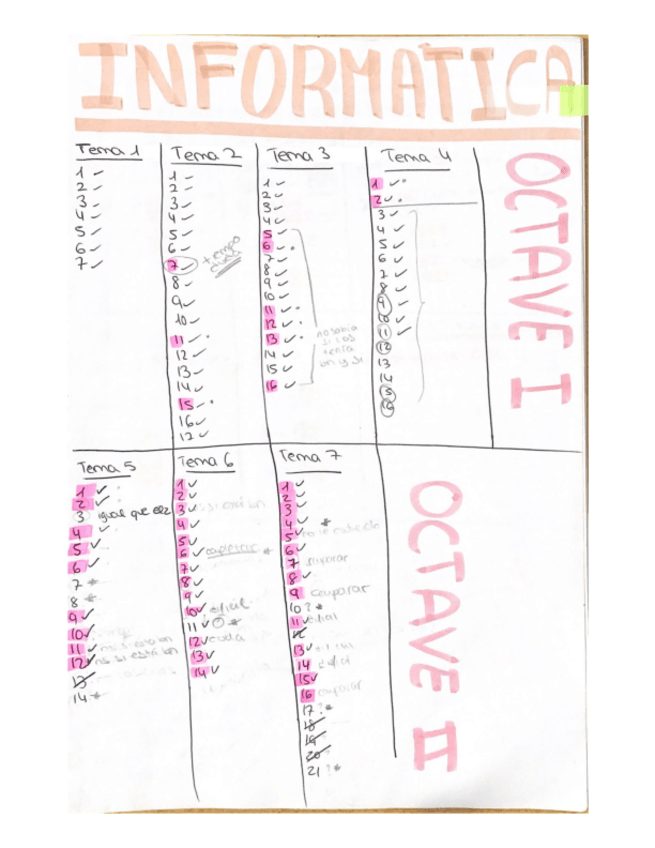 INFORMATICA
OCTAVE I
Tema 1
1 ✓
2 ✓
3 ✓
4 ✓
5 ✓
6 ✓
7 ✓
Tema 2
1 ✓
2 ✓
3 ✓
4 ✓
5 ✓
6 ✓
7 ✓ + tiempo
8 ✓
9 ✓
10 ✓
11 ✓ •
12 ✓
13 ✓
14 ✓
15 ✓ •
16 ✓
12 ✓
Tema 3
1 ✓
2 ✓
3 ✓
4 ✓
5 ✓
6 ✓ •
7 ✓
8 ✓
9 ✓
10 ✓
11 ✓ •
12 ✓ •
13 ✓ •
14 ✓
15 ✓
16 ✓
no sabía
si las
tenía
Tema 4
1 ✓ •
2 ✓ •
3 ✓
4 ✓
5 ✓
6 ✓
7 ✓
8 ✓
9 ✓
10 ✓
11 ✓
12
13
14
15
16
OCTAVE II
Tema 5
1 ✓
2 ✓
3 igual que el 2
4 ✓
5 ✓
6 ✓
7 *
8 *
9 ✓
10 ✓
11 ✓ no si están
12 ✓ no si están
13
14 *
Tema 6
1 ✓
2 ✓
3 ✓
4 ✓
5 ✓
6 ✓ *
7 ✓
8 ✓
9 ✓
10 ✓ difícil
11 ✓ *
12 ✓ duda
13 ✓
14 ✓
Tema 7
1 ✓
2 ✓
3 ✓
4 ✓ *
5 ✓
6 ✓
7 comparar
8 ✓
9 comparar
10 ? *
11 ✓
12
13 ✓
14
15 ✓
16 comparar
17 ? *
18
19
20
21 ? *